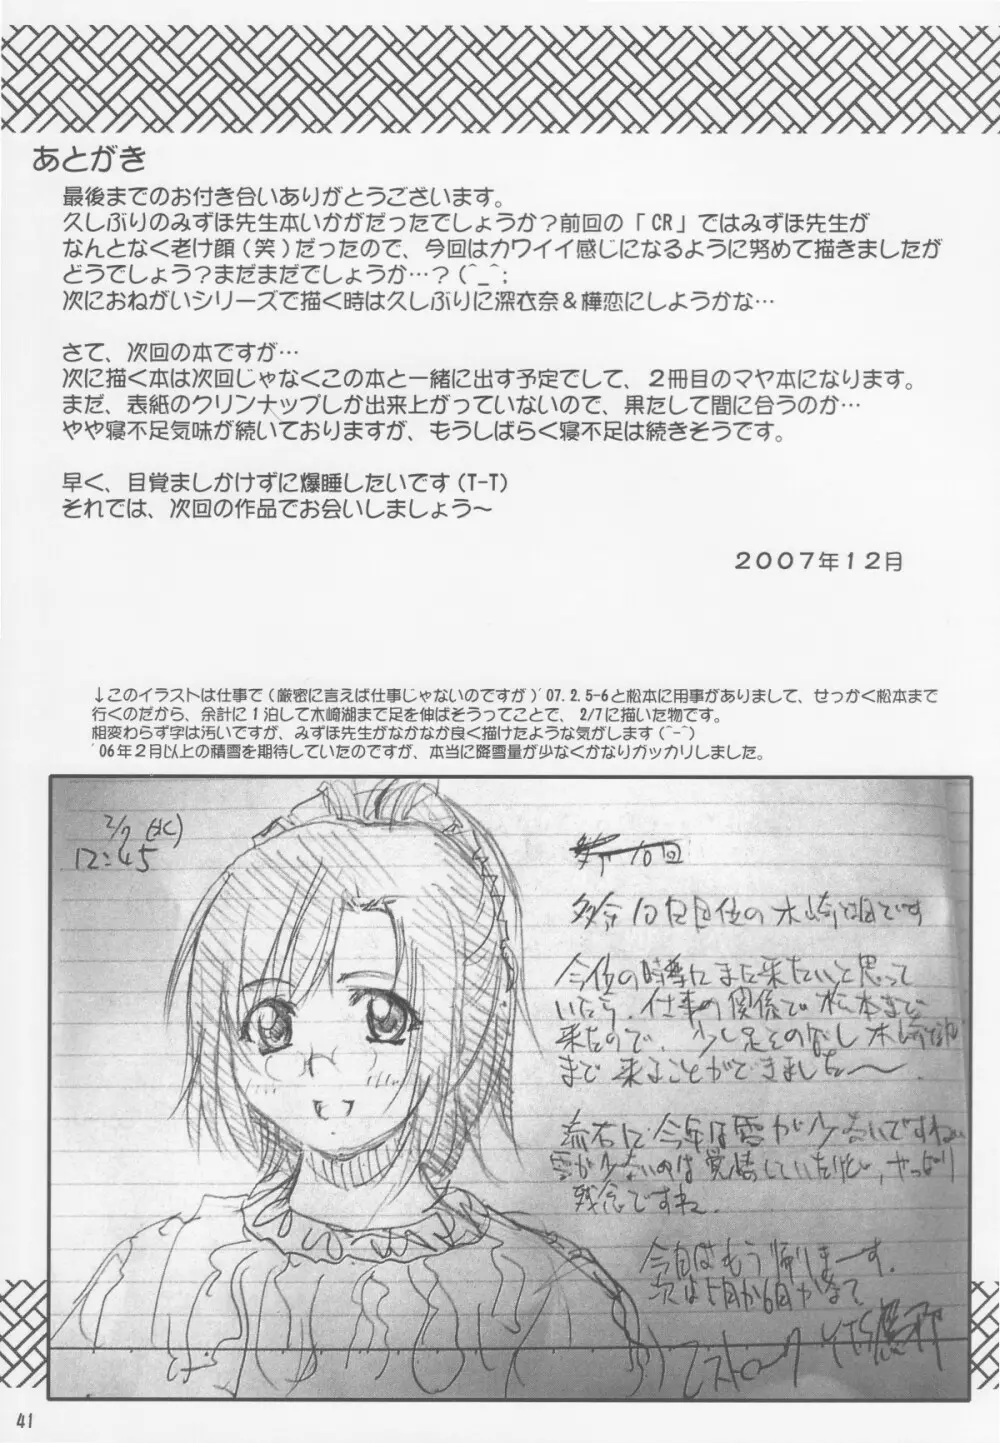 あとがき
最後までのお付き合いありがとうございます。
久しぶりのみずほ先生本いかがだったでしょうか？前回の「CR」ではみずほ先生が
なんとなく老け顔(笑)だったので、今回はカワイイ感じになるように努めて描きましたが
どうでしょう？まだまだでしょうか…？(^_^;
次におねがいシリーズで描く時は久しぶりに深衣奈＆樺恋にしようかな…
さて、次回の本ですが…
次に描く本は次回じゃなくこの本と一緒に出す予定でして、２冊目のマヤ本になります。
まだ、表紙のクリンナップしか出来上がっていないので、果たして間に合うのか…
やや寝不足気味が続いておりますが、もうしばらく寝不足は続きそうです。
早く、目覚ましかけずに爆睡したいです(T-T)
それでは、次回の作品でお会いしましょう～
２００７年１２月
↓このイラストは仕事で(厳密に言えば仕事じゃないのですが)'07.2.5-6と松本に用事がありまして、せっかく松本まで
行くのだから、余計に１泊して木崎湖まで足を伸ばそうってことで、2/7に描いた物です。
相変わらず字は汚いですが、みずほ先生がなかなか良く描けたような気がします(^-^)
'06年２月以上の積雪を期待していたのですが、本当に降雪量が少なくかなりガッカリしました。
2/7 (水)
12:45
10回
多分10回目位の木崎湖です
今位の時季にまた来たいと思って
いたら、仕事の関係で松本まで
来たので、少し足をのばし木崎湖
まで来ることができました～。
流石に今年は雪が少ないですねぃ
雪が少ないのは覚悟していたけど、やっぱり
残念ですね。
今日はもう帰りまーす。
次は5月か6月かなて
41